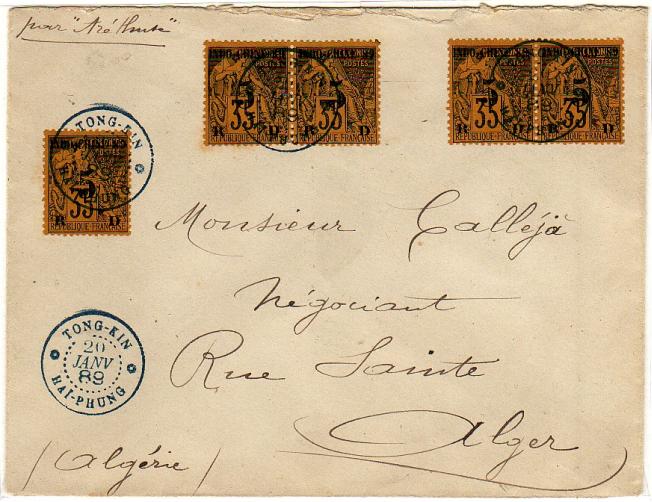 par "Aréthuse"
INDO-CHINE 89 5 R D 35 POSTES RÉPUBLIQUE FRANÇAISE
INDO-CHINE 89 5 R D 35 POSTES RÉPUBLIQUE FRANÇAISE
INDO-CHINE 89 5 R D 35 POSTES RÉPUBLIQUE FRANÇAISE
INDO-CHINE 89 5 R D 35 POSTES RÉPUBLIQUE FRANÇAISE
TONG-KIN
INDO-CHINE 89 5 R D 35 RÉPUBLIQUE FRANÇAISE
Monsieur Calléja
Négociant
TONG-KIN
20
JANV
89
HAI-PHUNG
Rue Sainte
Alger
(Algérie)